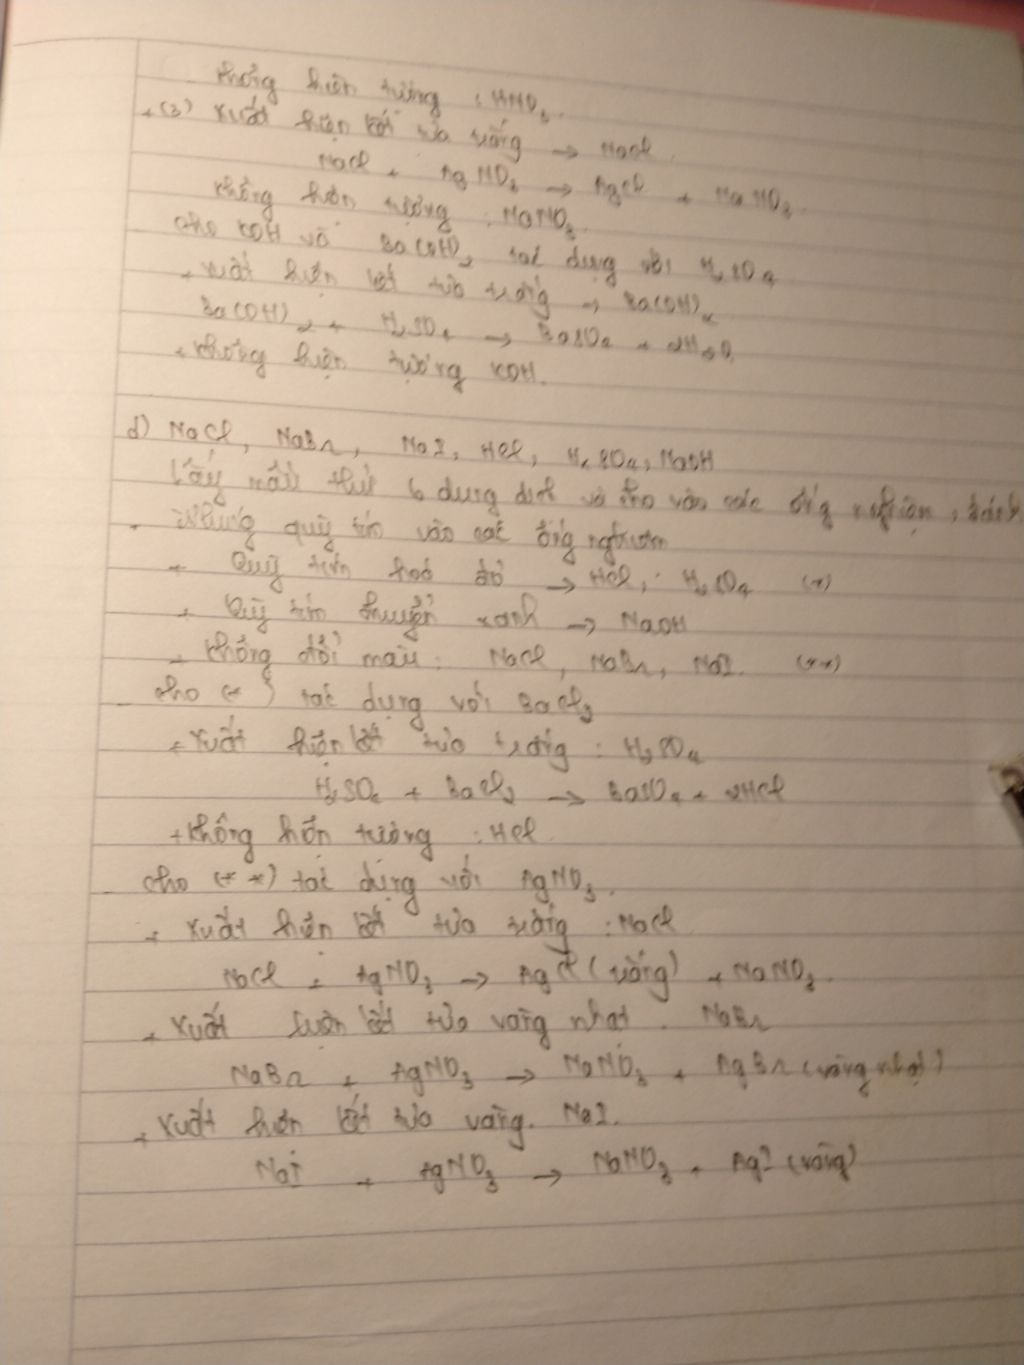 không hiện tượng : HNO3.
+ (3) Xuất hiện kết tủa trắng → NaCl.
NaCl + AgNO3 → AgCl + NaNO3.
Không hiện tượng : NaNO3.
Cho KOH và Ba(OH)2 tác dụng với H2SO4
+ Xuất hiện kết tủa trắng → Ba(OH)2
Ba(OH)2 + H2SO4 → BaSO4 + 2H2O
+ Không hiện tượng KOH.
d) NaCl, NaBr, NaI, HCl, H2SO4, NaOH
Lấy mẫu thử 6 dung dịch và cho vào các ống nghiệm, đánh
. Nhúng quỳ tím vào các ống nghiệm
+ Quỳ tím hoá đỏ → HCl, H2SO4 (*)
+ Quỳ tím chuyển xanh → NaOH
+ Không đổi màu: NaCl, NaBr, NaI. (**)
Cho (*) tác dụng với BaCl2
+ Xuất hiện kết tủa trắng : H2SO4
H2SO4 + BaCl2 → BaSO4 + 2HCl
+ Không hiện tượng : HCl.
Cho (**) tác dụng với AgNO3.
+ Xuất hiện kết tủa trắng : NaCl
NaCl + AgNO3 → AgCl (trắng) + NaNO3.
+ Xuất hiện kết tủa vàng nhạt. NaBr
NaBr + AgNO3 → NaNO3 + AgBr (vàng nhạt)
+ Xuất hiện kết tủa vàng. NaI.
NaI + AgNO3 → NaNO3 + AgI (vàng)